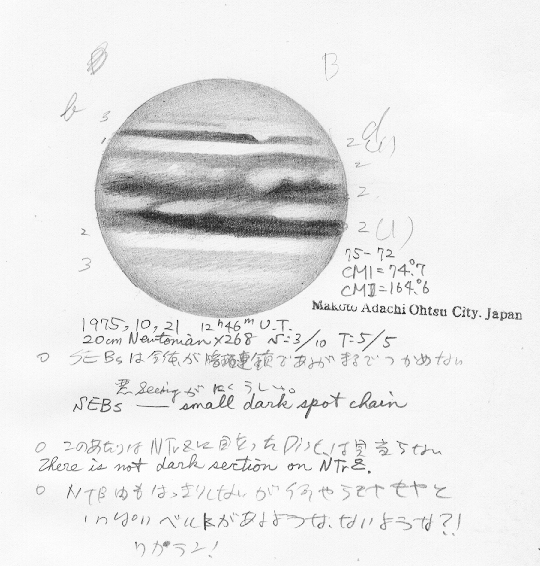 B
b
3
1
2
3
2 (1)
2
2
2 (1)
75-72
CMI = 74.°7
CMII = 164.°6
Makoto Adachi Ohtsu City. Japan
1975, 10, 21 12h46m U.T.
20cm Newtonian ×268 S=3/10 T=5/5
○ SEBsは であるがまるでつかめない
悪Seeingがにくらしい。
SEBs — small dark spot chain
○ このあたりは NTrZに目立った は見当らない
There is not dark section on NTrZ.
○ NTB もはっきりしないが
ベルトがあるような、ないような?!